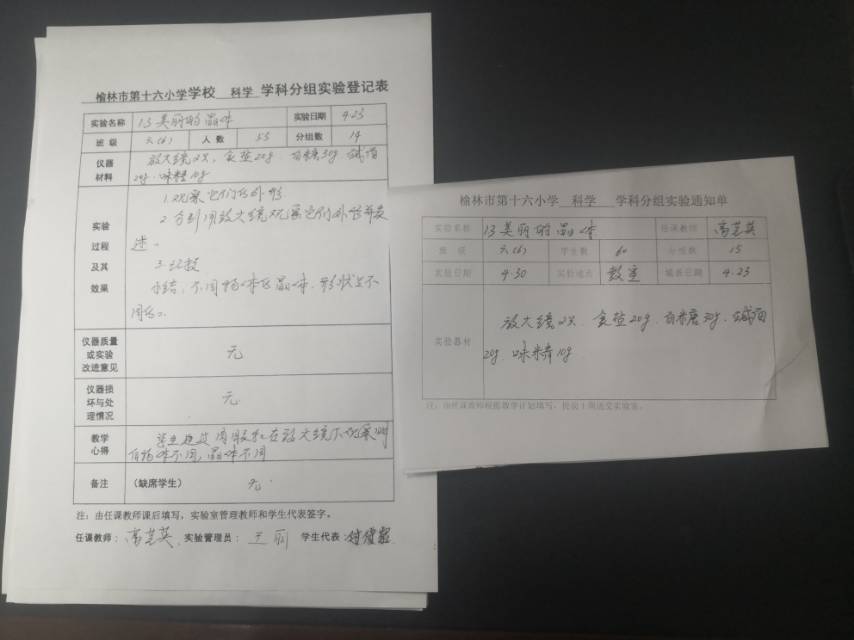 榆林市第十六小学学校 科学 学科分组实验登记表
实验名称 13美丽的晶体 实验日期 4.23
班级 六(6) 人数 55 分组数 14
仪器材料 放大镜2只, 食盐20g. 白糖30g. 碱面
20g. 味精10g
实验过程及其效果
1.观察它们的外形
2.分别用放大镜观察它们外形并表
述。
3.
小结, 不同物体的晶体. 形状是不
同的。
仪器质量或实验改进意见 无
仪器损坏与处理情况 无
教学心得 在放大镜下观察
物体不同, 晶体不同
备注 (缺席学生) 无.
注:由任课教师课后填写,实验室管理教师和学生代表签字。
任课教师: 高芝英. 实验管理员: 王丽 学生代表:
榆林市第十六小学 科学 学科分组实验通知单
实验名称 13美丽的晶体 任课教师 高芝英
班级 六(6) 学生数 60 分组数 15
实验日期 4.30 实验地点 教室 填表日期 4.23
实验器材 放大镜2只. 食盐20g. 白糖30g. 碱面
20g. 味精10g.
注:由任课教师根据教学计划填写,提前1周送交实验室。